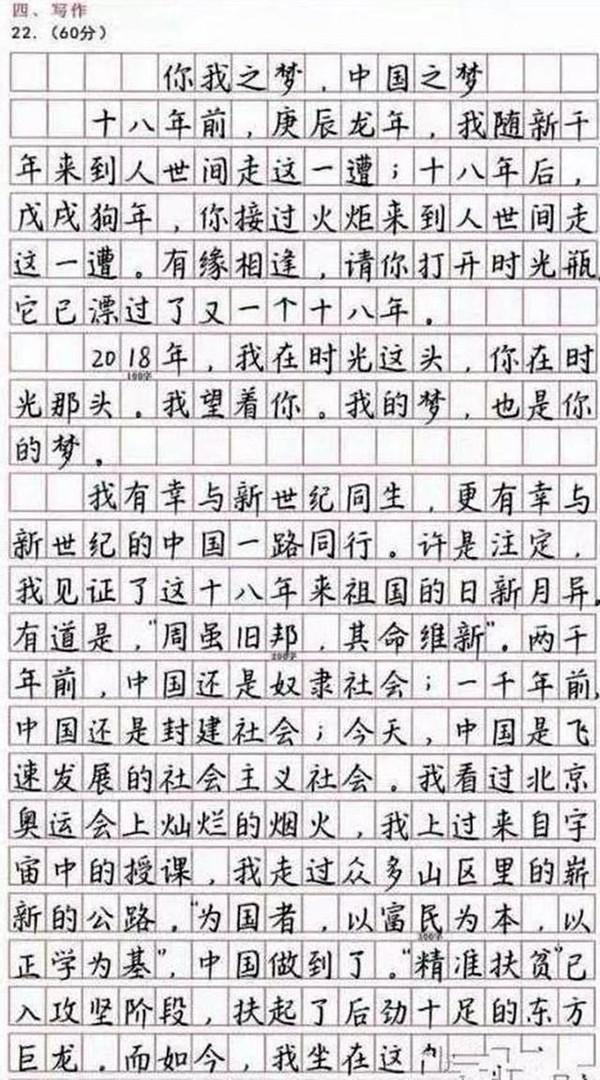 四、写作
22.（60分）
你我之梦，中国之梦
十八年前，庚辰龙年，我随新千
年来到人世间走这一遭；十八年后，
戊戌狗年，你接过火炬来到人世间走
这一遭。有缘相逢，请你打开时光瓶，
它已漂过了又一个十八年。
2018年，我在时光这头，你在时
100字
光那头。我望着你。我的梦，也是你
的梦。
我有幸与新世纪同生，更有幸与
新世纪的中国一路同行。许是注定，
我见证了这十八年来祖国的日新月异。
有道是，"周虽旧邦，其命维新"。两千
200字
年前，中国还是奴隶社会；一千年前，
中国还是封建社会；今天，中国是飞
速发展的社会主义社会。我看过北京
奥运会上灿烂的烟火，我上过来自宇
宙中的授课，我走过众多山区里的崭
新的公路。"为国者，以富民为本，以
300字
正学为基"，中国做到了。"精准扶贫"已
入攻坚阶段，扶起了后劲十足的东方
巨龙。而如今，我坐在这